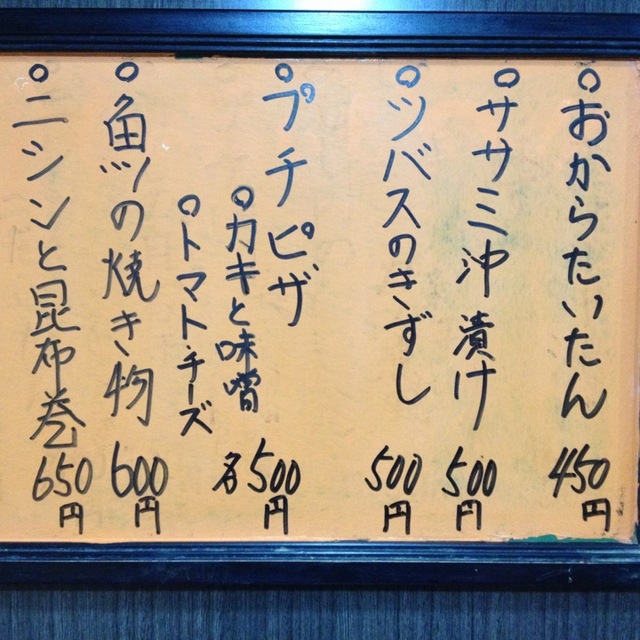 ○おからたいたん 450円
○ササミ沖漬け 500円
○ツバスのきずし 500円
○プチピザ 各500円
○カキと味噌
○トマト・チーズ
○魚ツの焼き物 600円
○ニシンと昆布巻 650円